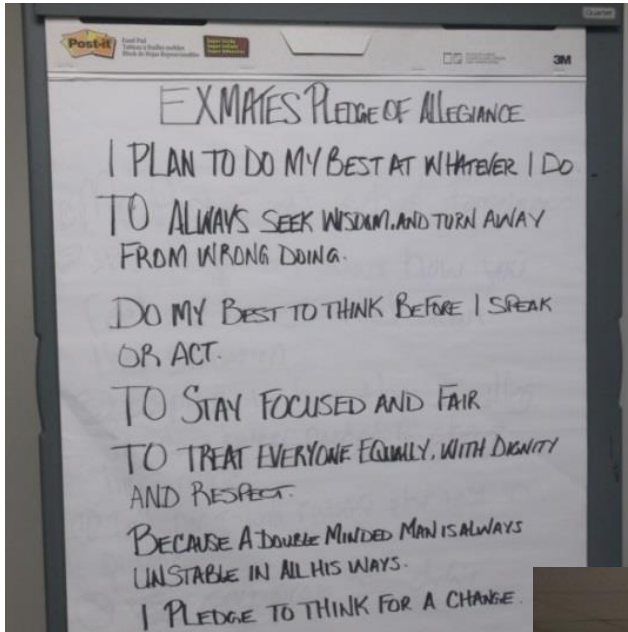 Quartet
Post-it
Easel Pad
Super Sticky
3M
EXMATES PLEDGE OF ALLEGIANCE
I PLAN TO DO MY BEST AT WHATEVER I DO
TO ALWAYS SEEK WISDOM. AND TURN AWAY
FROM WRONG DOING.
DO MY BEST TO THINK BEFORE I SPEAK
OR ACT.
TO STAY FOCUSED AND FAIR
TO TREAT EVERYONE EQUALLY, WITH DIGNITY
AND RESPECT.
BECAUSE A DOUBLE MINDED MAN IS ALWAYS
UNSTABLE IN ALL HIS WAYS.
I PLEDGE TO THINK FOR A CHANGE.